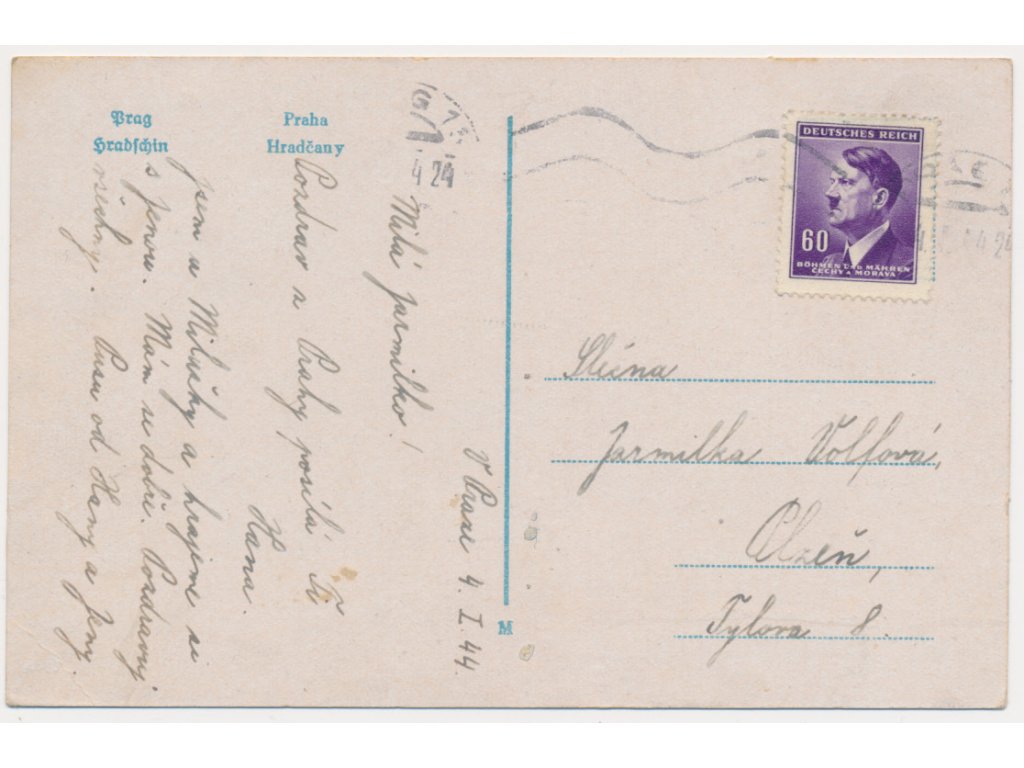 Prag
Hradschin
Praha
Hradčany
V Praze 4. I. 44.
Milá Jarmilko!
Pozdrav z Prahy posílá Ti
Hana.
Jsem u Miluşky a hrajeme si
s Jenou. Mám se dobře. Pozdravuj
všechny. Pusu od Hany a Jeny
M
DEUTSCHES REICH
60
BÖHMEN UND MÄHREN
ČECHY A MORAVA
4 24
Slečna
Jarmilka Volfová,
Plzeň,
Tylova 8.